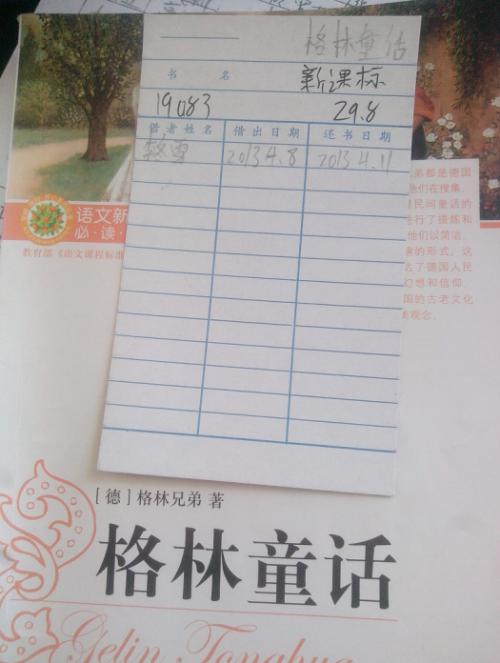 格林童话
书 名
新课标
19083
29.8
借者姓名 借出日期 还书日期
2013 4.8 2013 4.11
语文新
必·读·
教育部《语文课程标准
弟都是德国
他们在搜集、
民间童话的
进行了提炼和
他们以简洁、
的形式，这
了德国人民
幻想和信仰
国的古老文化
观念。
[德] 格林兄弟 著
格林童话
Gelin Tonghua